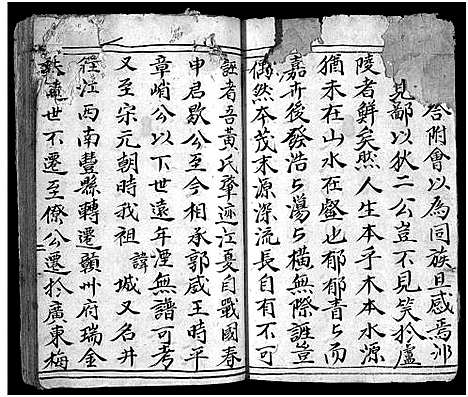 合附會以為同族旦感焉邪
見鄙以狄二公豈不見笑於廬
陵者鮮矣然人生本乎木本水源
猶未在山水在壑也郁郁青々而
嘉卉後發浩々蕩々橫無際涯豈
偶然本茂末源深流長自有不可
誣者吾黃氏肇迹江夏自戰國春
申君歇公至今相承郭威王時平
章峭公以下世遠年湮無譜可考
又至宋元朝時我祖 諱 城又名井
徑江西南豐縣轉遷贛州府瑞金
世不遷至僚公遷於廣東梅